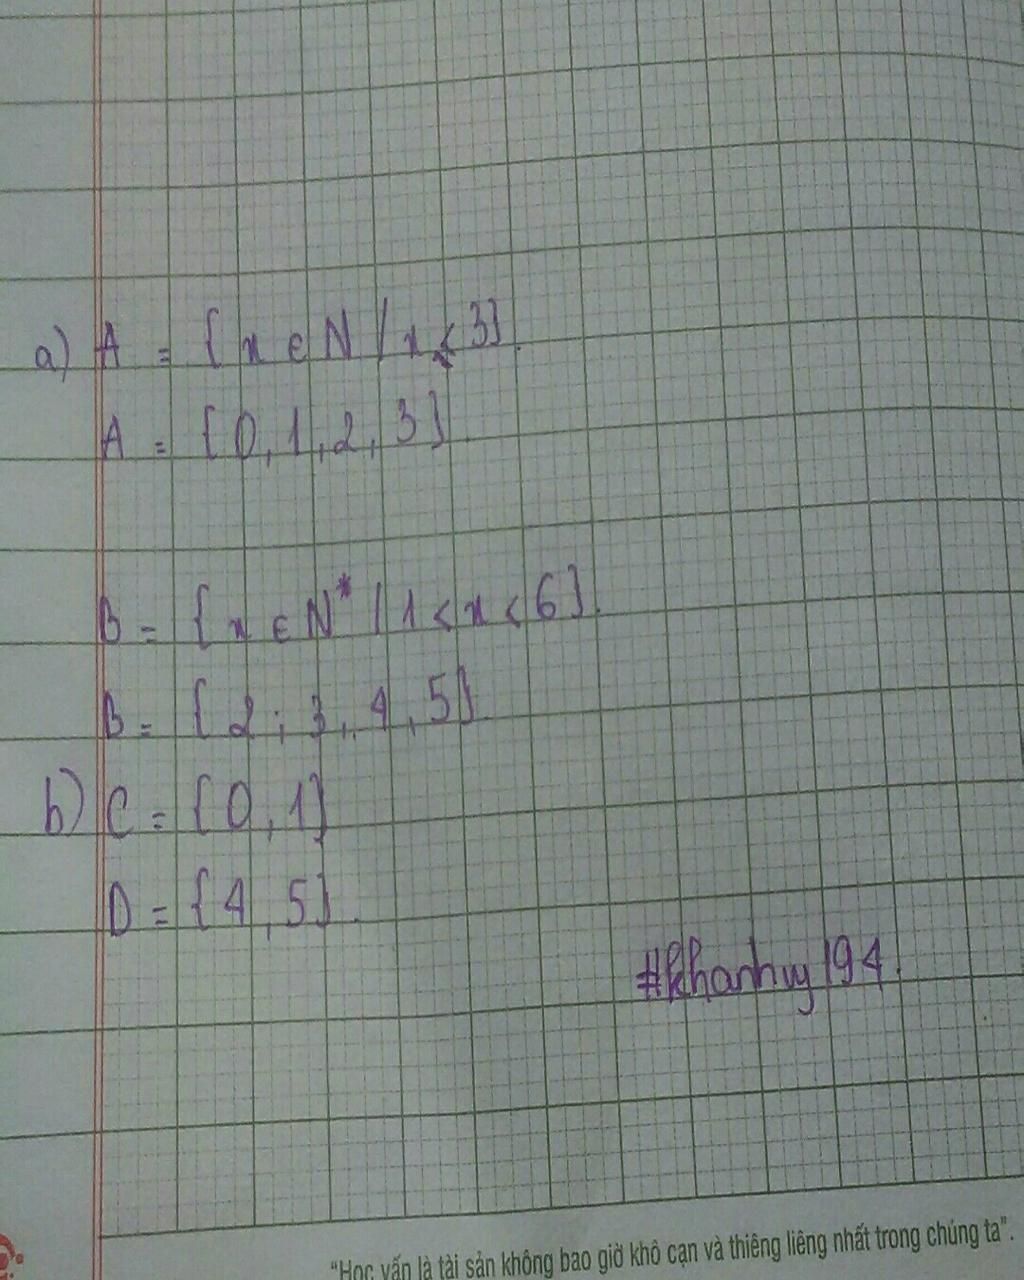 a) A = {x ∈ N / x ≤ 3}.
A = {0, 1, 2, 3}
B = {x ∈ N* / 1 < x < 6}.
B = {2; 3, 4, 5}
b) C = {0, 1}
D = {4, 5}.
#khanhuy194.
“Học vấn là tài sản không bao giờ khô cạn và thiêng liêng nhất trong chúng ta”.